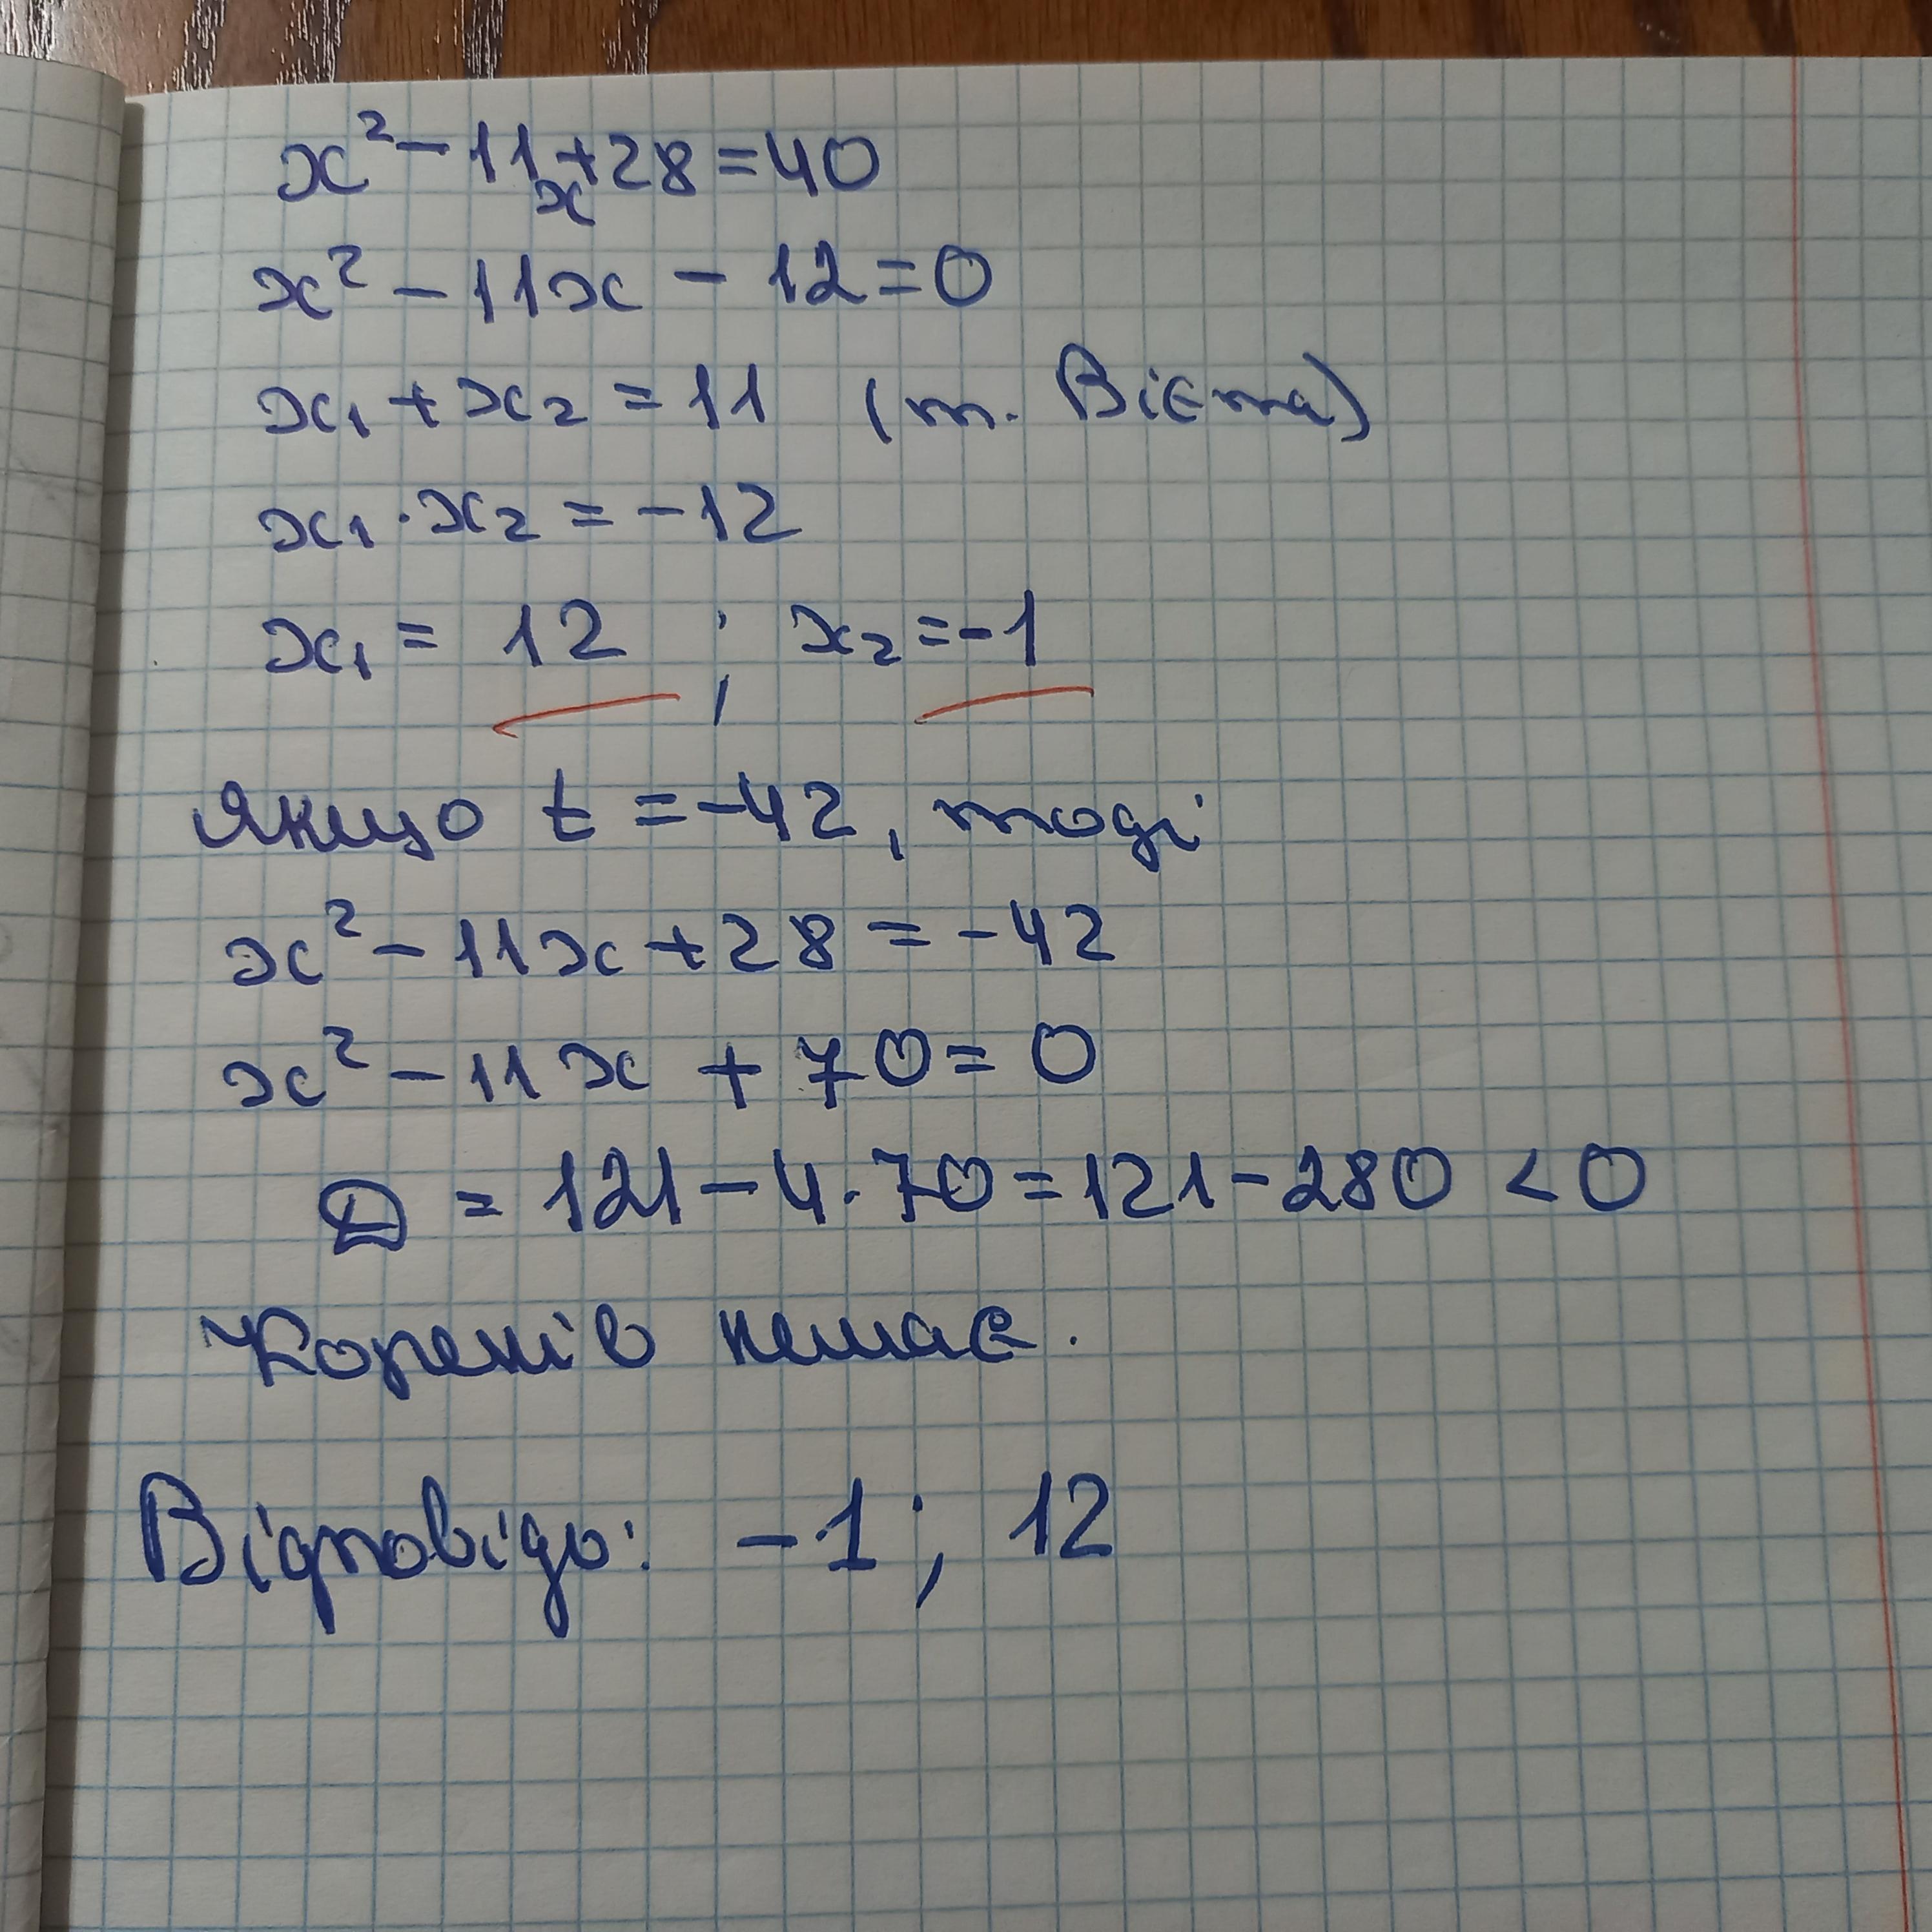 x² - 11x + 28 = 40
x² - 11x - 12 = 0
x₁ + x₂ = 11 (т. Вієта)
x₁ · x₂ = -12
x₁ = 12 ; x₂ = -1
Якщо t = -42, тоді
x² - 11x + 28 = -42
x² - 11x + 70 = 0
D = 121 - 4 · 70 = 121 - 280 < 0
Коренів немає.
Відповідь: -1; 12